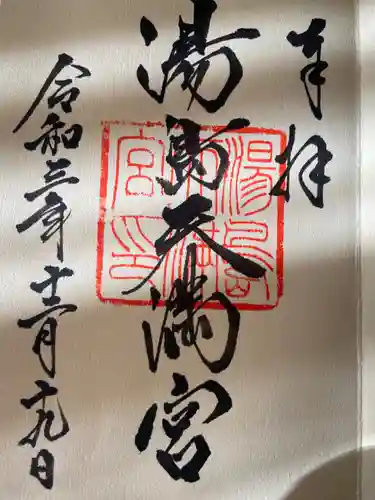 奉拝
湯島天満宮
令和三年十二月十九日
湯島天満宮印